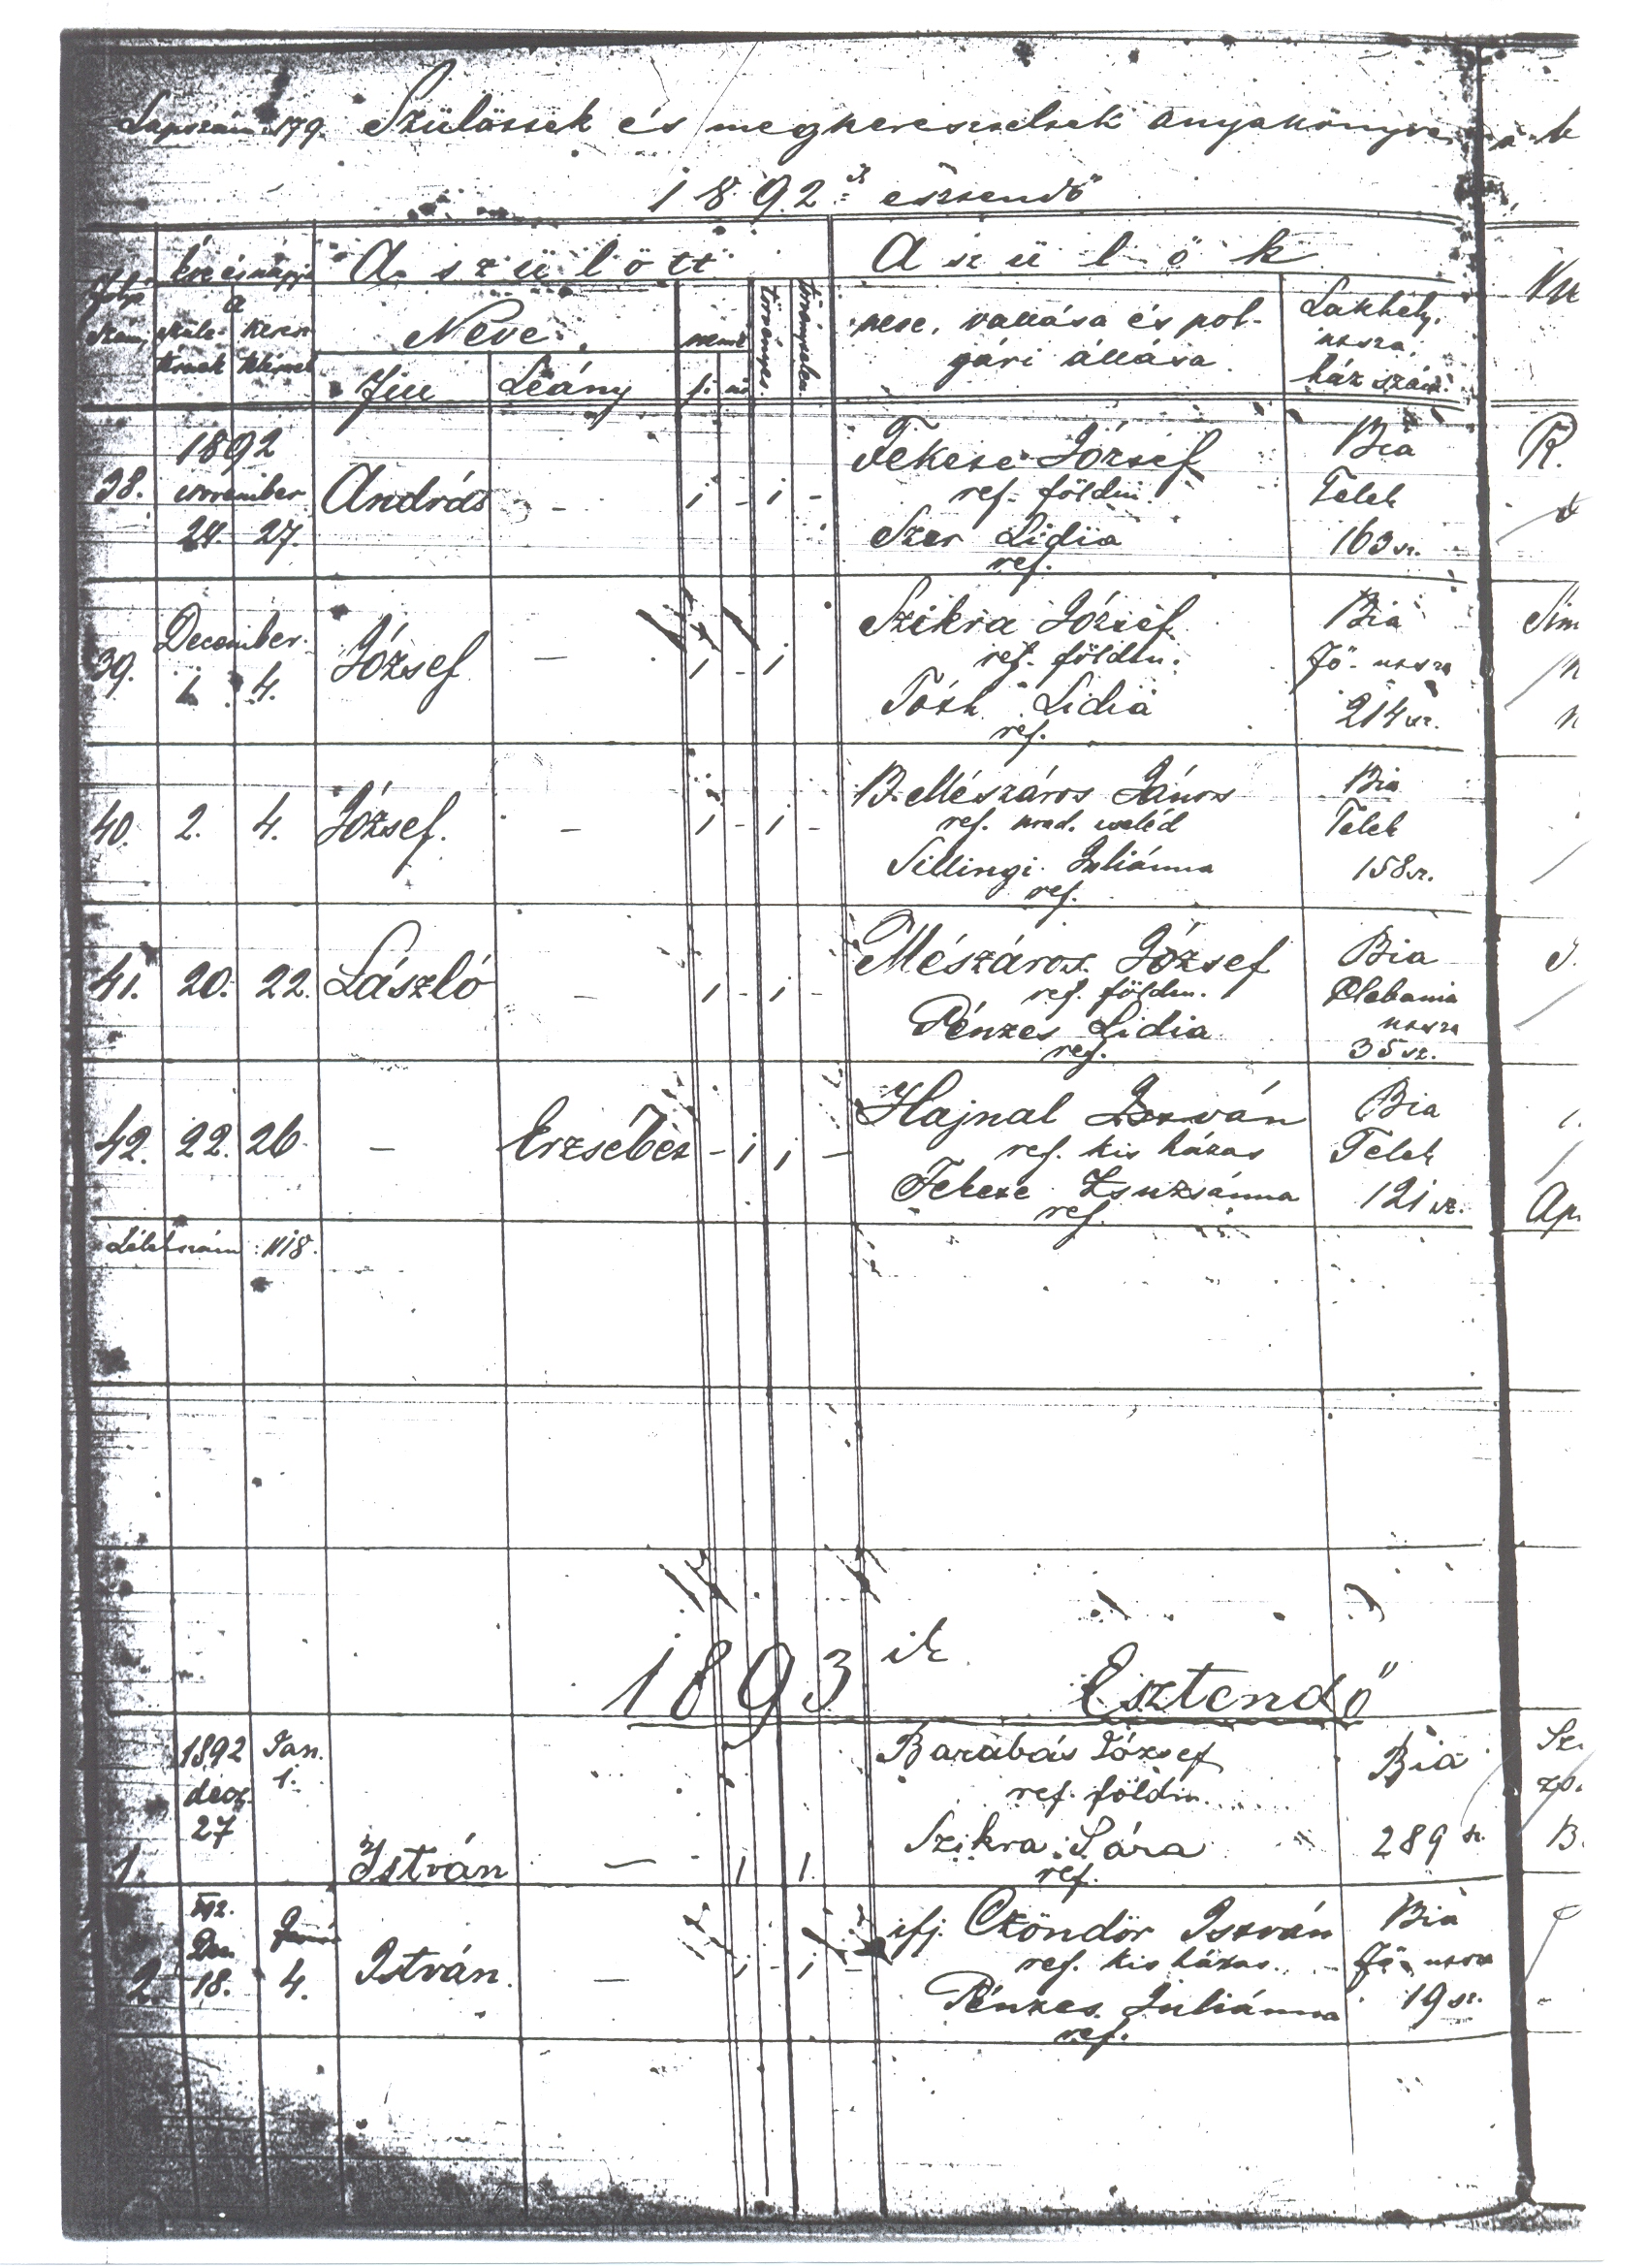 Lapszám 179. Szülöttek és megkereszteltek anyakönyve
1892 ik esztendő
A született
A szülők
folyó szám
év és napja
a
szüle-
tésnek
keresz-
telésnek
Neve
Fiu
Leány
neme
f.
nő
törvényes
törvénytelen
neve, vallása és pol-
gári állása
Lakhely,
utsza,
ház szám
38.
1892
november
24. 27.
András
-
1 - 1 -
Fekete József
ref. földm.
Szer Lidia
ref.
Bia
Telek
163 sz.
39.
December
1. 4.
József
-
1 1
Szikra József
ref. földm.
Tóth Lidia
ref.
Bia
Fő utsza
214 sz.
40.
2. 4.
József.
-
1 - 1 -
B. Mészáros János
ref. urad. cseléd
Sillingi Juliánna
ref.
Bia
Telek
158 sz.
41.
20. 22.
László
-
1 - 1 -
Mészáros József
ref. földm.
Pénzes Lidia
ref.
Bia
Plebania
utsza
35 sz.
42.
22. 26
-
Erzsébet
- 1 1 -
Hajnal István
ref. kis házas
Fekete Zsuzsánna
ref.
Bia
Telek
121 sz.
Lélekszám
1893 ik Esztendő
1.
1892
decz.
27
Jan.
1.
István
-
1 1.
Barabás József
ref. földm.
Szikra Sára
ref.
Bia
289 sz.
2.
892.
Dec.
18.
Januá
4.
István.
-
1 - 1 -
ifj. Czöndör István
ref. kis házas.
Pénzes Juliánna
ref.
Bia
Fő utsza
19 sz.